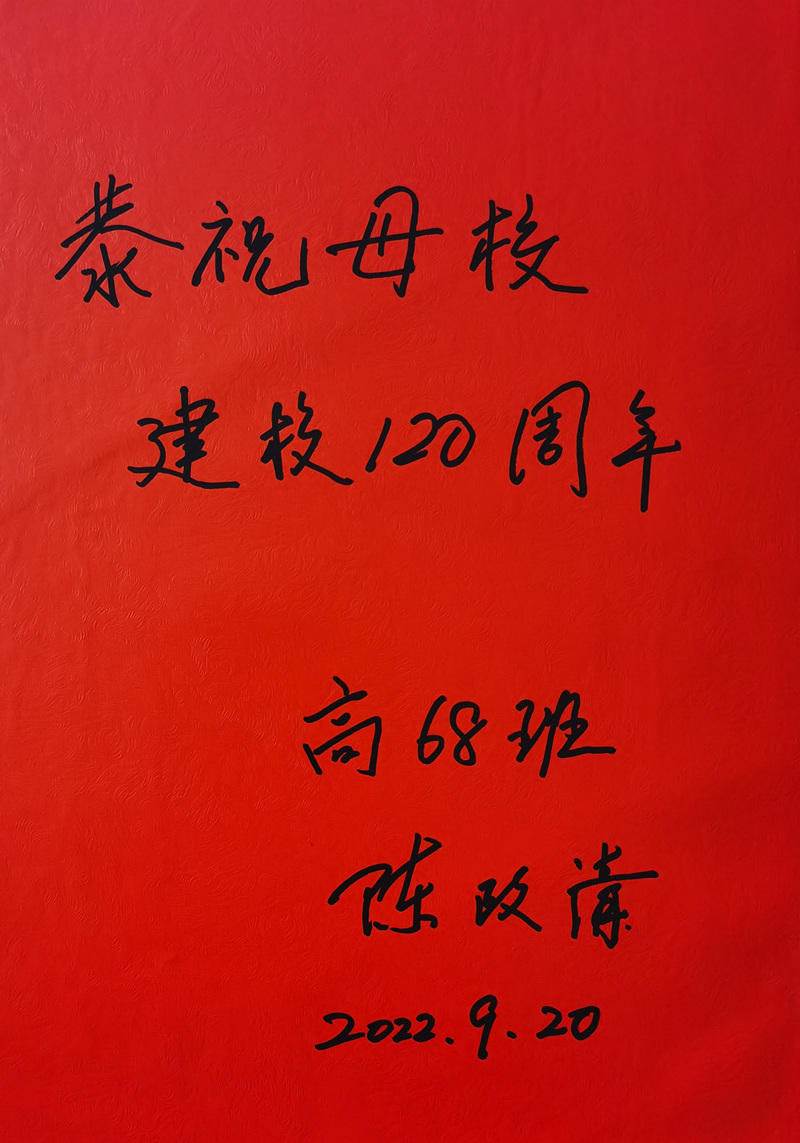 恭祝母校
建校120周年
高68班
陈政清
2022.9.20